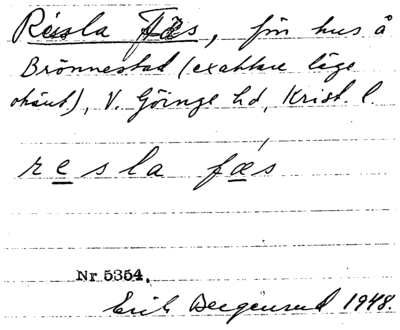 Ressla Fäs, fin hus å
Brönnestad (exaktare läge
okänt), V. Göinge hd, Krist. l.
resla fæs
Nr 5354.
Erik 1948.